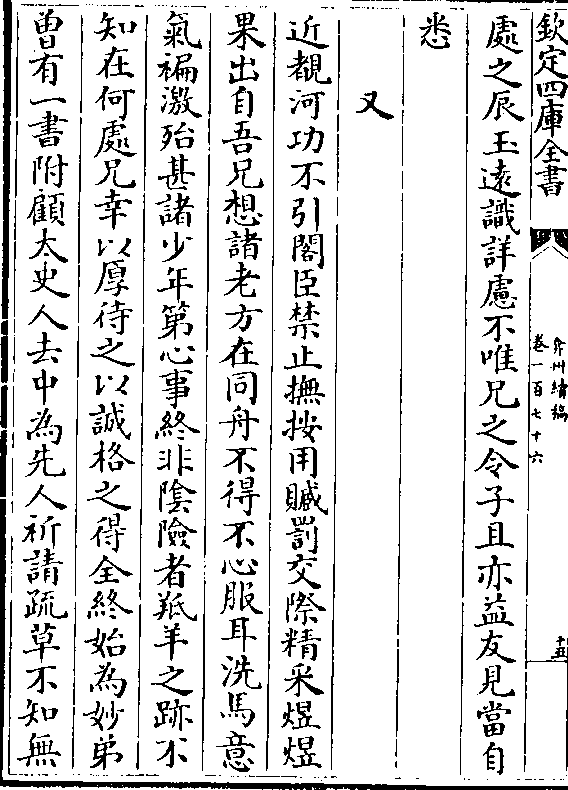 欽定四庫全書
弇州續稿
卷一百七十六
十五
處之辰玉遠識詳慮不唯兄之令子且亦益友見當自
悉
又
近覩河功不引閣臣禁止撫按用贓罰交際精采煜煜
果出自吾兄想諸老方在同舟不得不心服耳洗馬意
氣褊激殆甚諸少年第心事終非陰險者羝羊之跡不
知在何處兄幸以厚待之以誠格之得全終始為妙弟
曽有一書附顧太史人去中為先人祈請疏草不知無